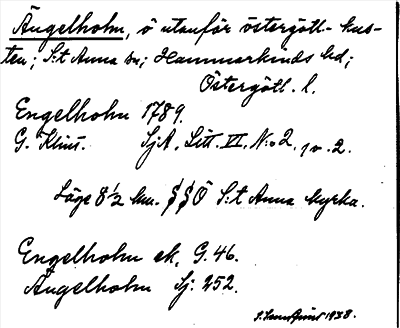 Ängelholm, ö utanför östergötl- kus-
ten; S:t Anna sn; Hammarkinds hd;
Östergötl. l.
Engelholm 1789.
G. Klint. SjA, Litt. VI, N:o 2, 1 o. 2.
Läge 8 1/2 km. SSÖ S:t Anna kyrka.
Engelholm ek. G. 46.
Ängelholm Sj: 252.
1938.